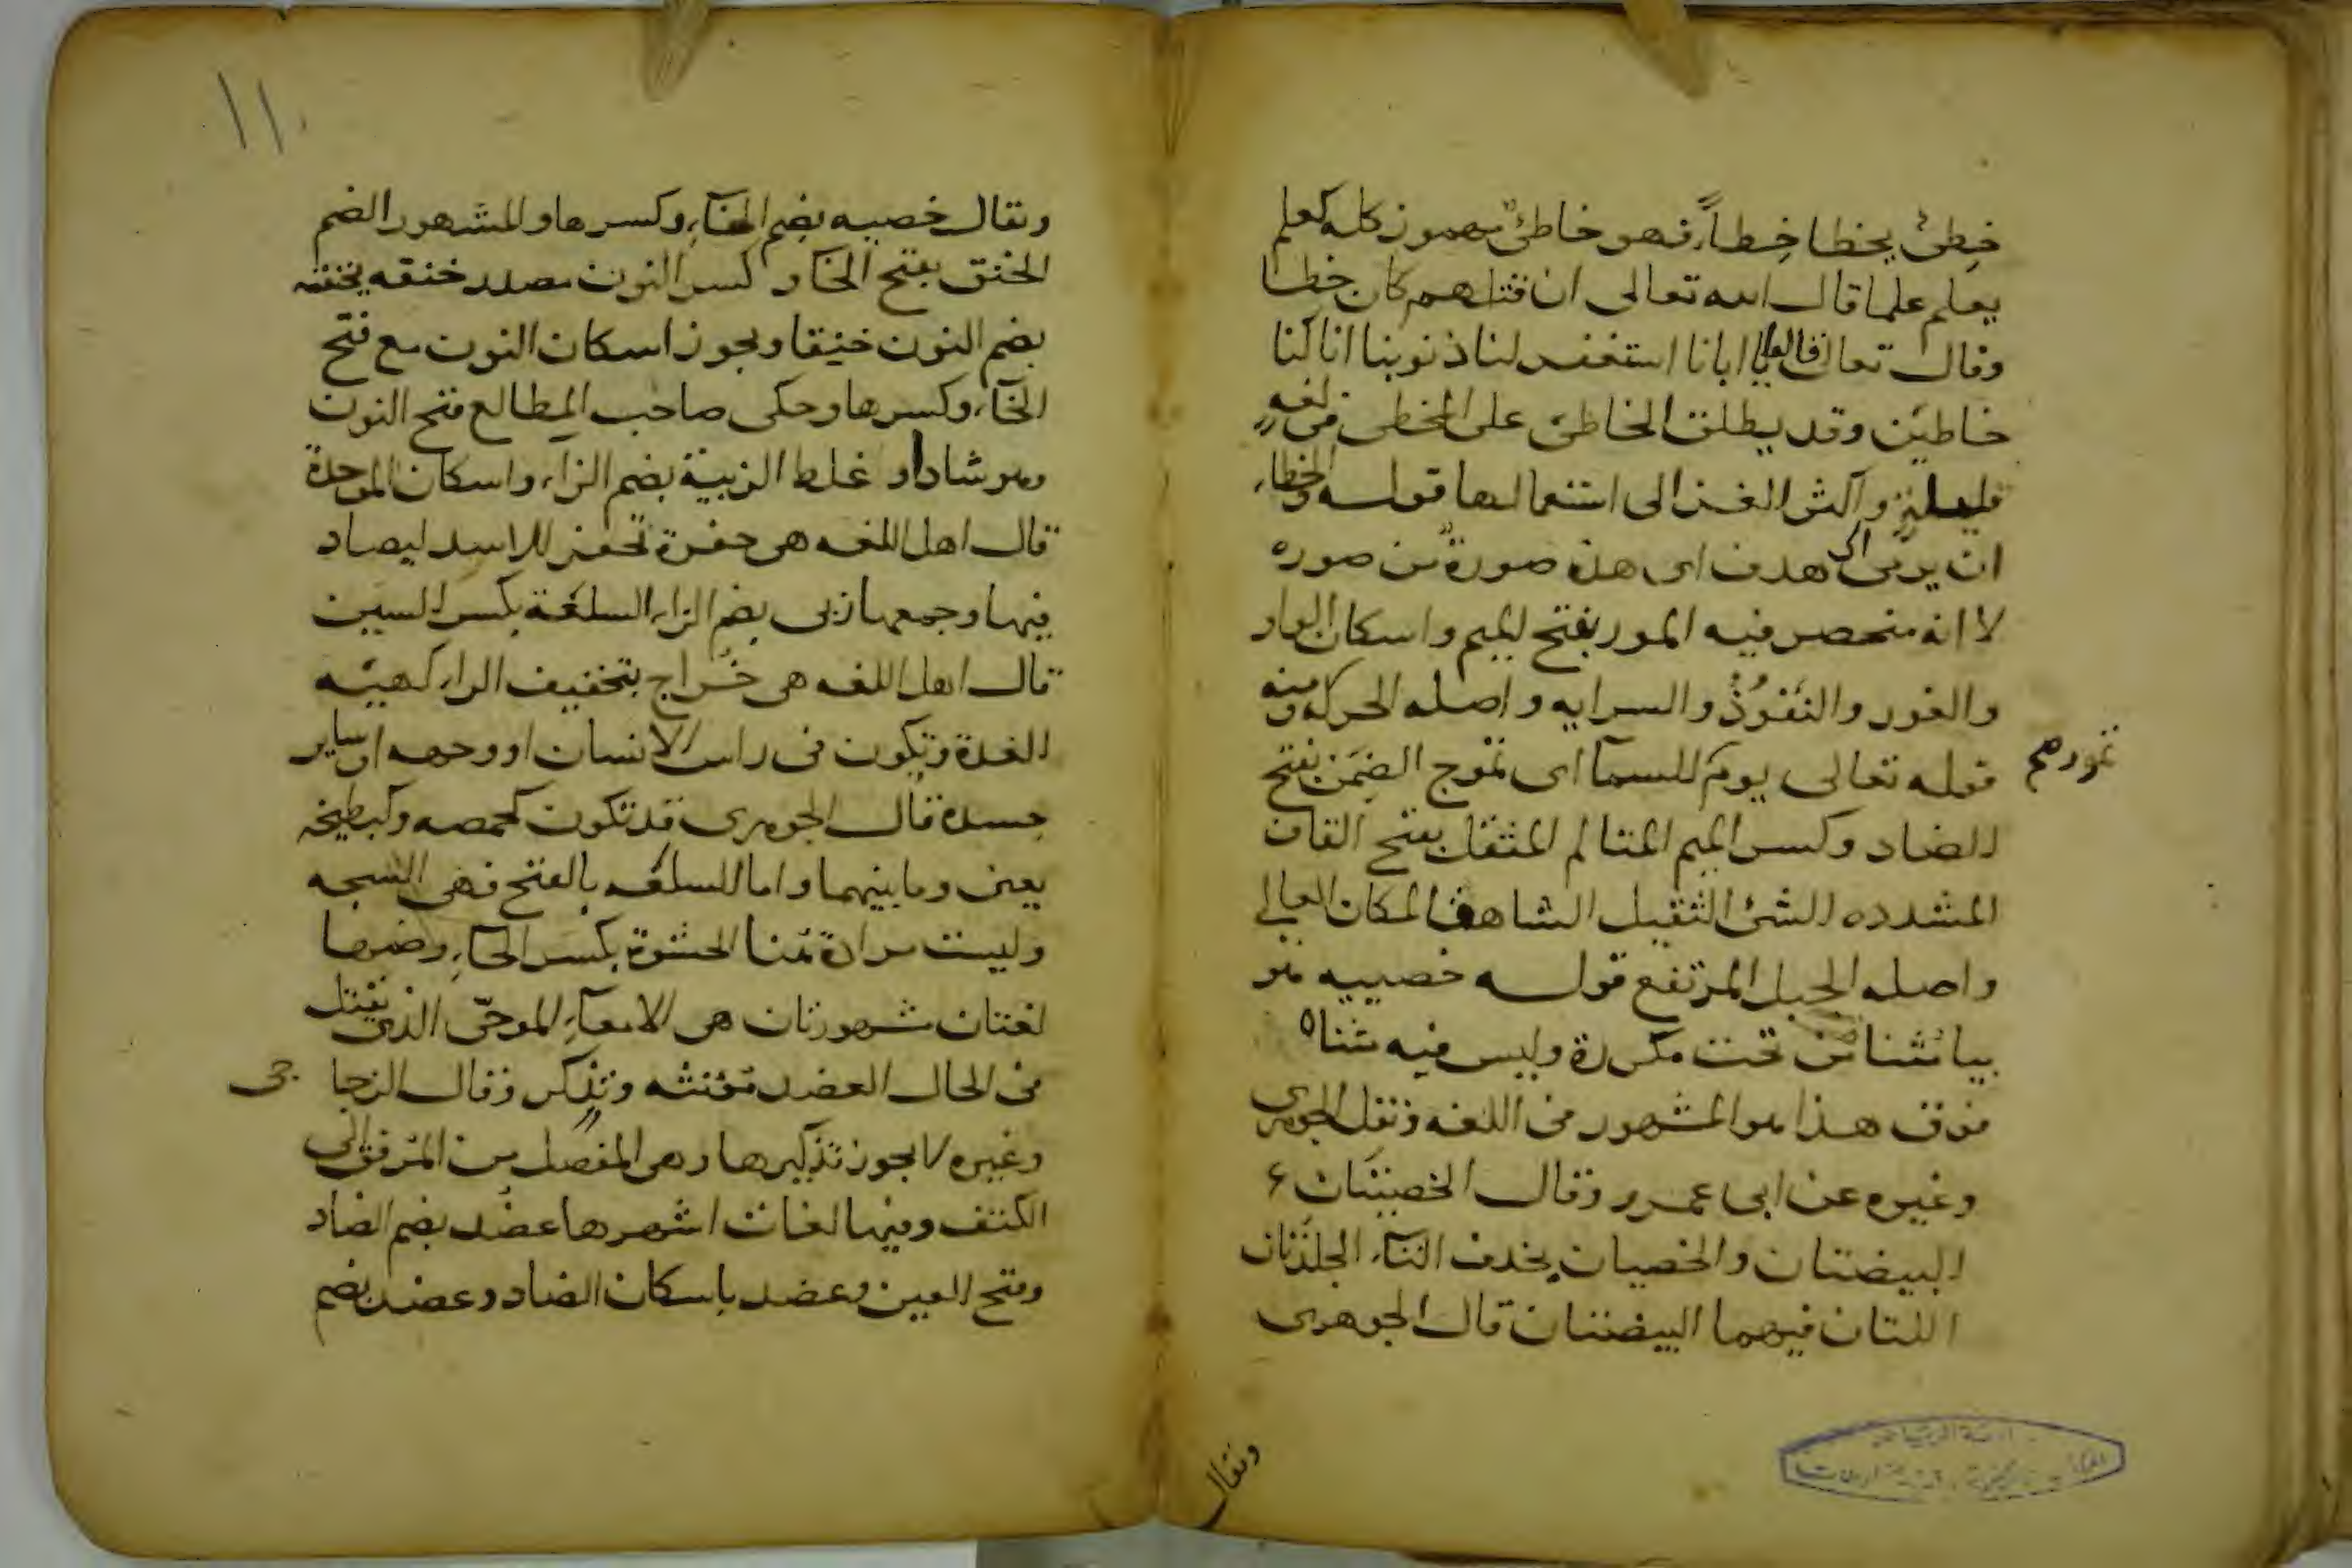 خطِئ يخطا خِطاً فهو خاطئ مهموز كله كعلم
يعلم علما قال الله تعالى ان قتلهم كان خطا
وقال تعالى قالوا يا ابانا استغفر لنا ذنوبنا انا كنا
خاطئين وقد يطلق الخاطئ على المخطى فى لغه
قليلة الى استعمالها قوله والخطاء
ان يرمى الى هدف اى هذه صورة من صوره
لا انه منحصر فيه المور بفتح الميم واسكان الواو
والغور والنفوذ والسرايه واصله الحركه ومنه
قوله تعالى يوم للسمآ اى تموج الضمن بفتح
تمورهم
الضاد وكسر الميم المتالم المثقل بفتح القاف
المشدده الشئ الثقيل الشاهق المكان العالى
واصله الجبل المرتفع قوله خصييه هو
بيا مثناة من تحت مكررة وليس فيه مثناه
فوق هذا هو المشهور فى اللغه ونقل الجوهرى
وغيره عن ابى عمرو وقال الخصيتان
البيضتان والخصيان بحذف التآء الجلدتان
اللتان فيهما البيضتان قال الجوهرى
ويقال
١١
ويقال خصيه بضم الخآء وكسرها والمشهور الضم
الخنق بفتح الخا وكسر النون مصدر خنقه يخنقه
بضم النون خنيقا ويجوز اسكان النون مع فتح
الخآء وكسرها وحكى صاحب المطالع فتح النون
وهو شاذ او غلط الزبية بضم الزاء واسكان الموحدة
قال اهل اللغه هى حفرة تحفر للاسد ليصاد
فيها وجمعها زبى بضم الزاء السلعة بكسر السين
قال اهل اللغه هى خُراج بتخفيف الراء كهيئه
الغدة وتكون فى راس الانسان او وجهه او ساير
جسده قال الجوهرى قد تكون كحمصه وكبطيخه
يعنى وما بينهما واما السلعه بالفتح فهى الشجه
وليست مرادة هنا الحشوة بكسر الحآء وضمها
لغتان مشهورتان هى الامعآء الموحّى الذى يقتل
فى الحال العضد مؤنثه وتذكر وقال الزجا جى
وغيره لا يجوز تذكيرها وهى المفصل من المرفق الى
الكتف وفيها لغات اشهرها عضُد بضم الضاد
وفتح العين وعضد باسكان الضاد وعضد بضم